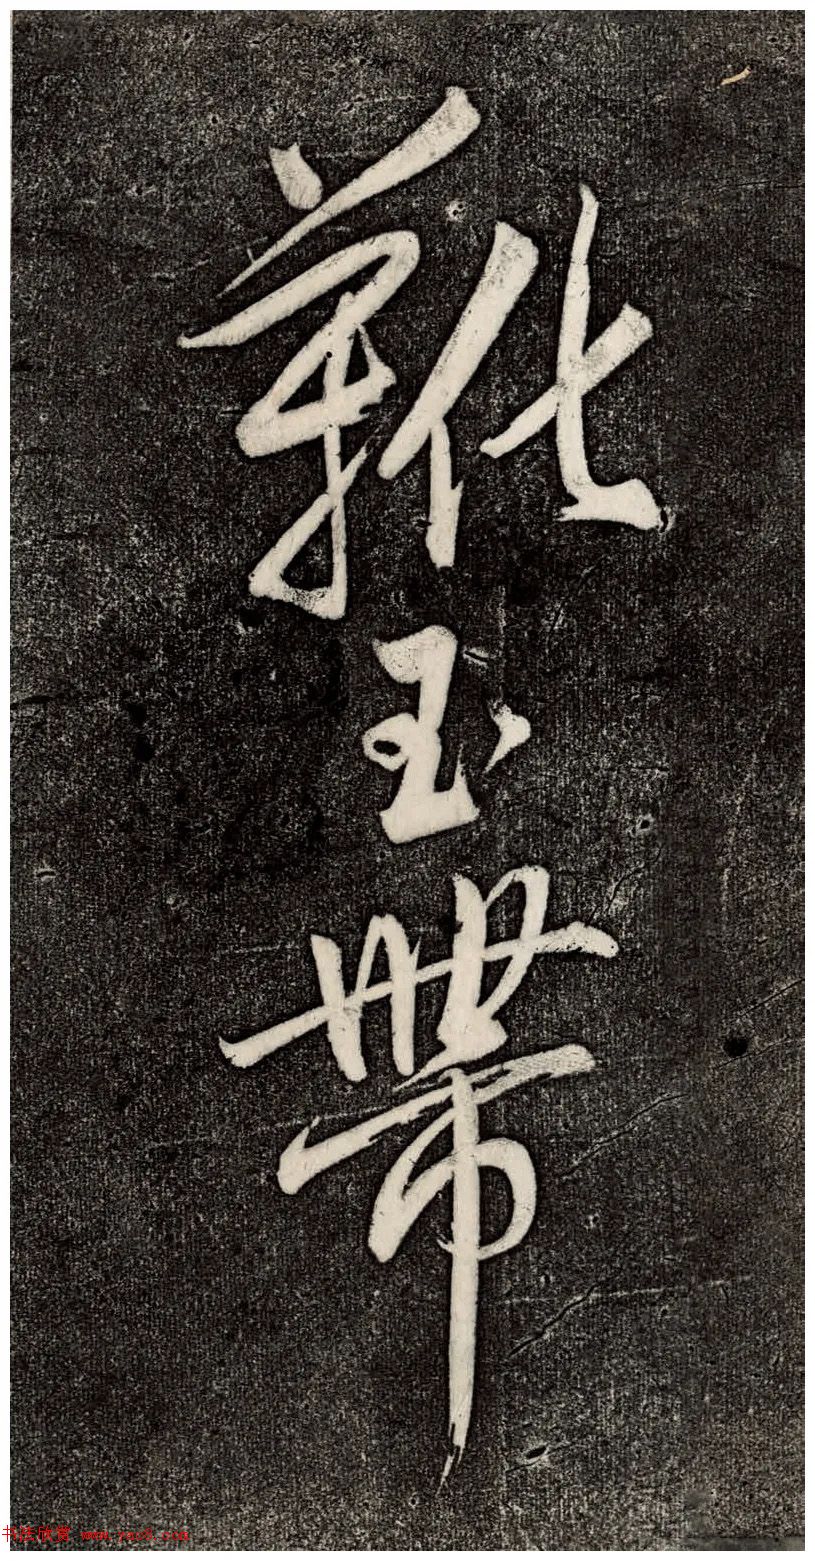 靴玉帶
书法欣赏 www.yac8.com